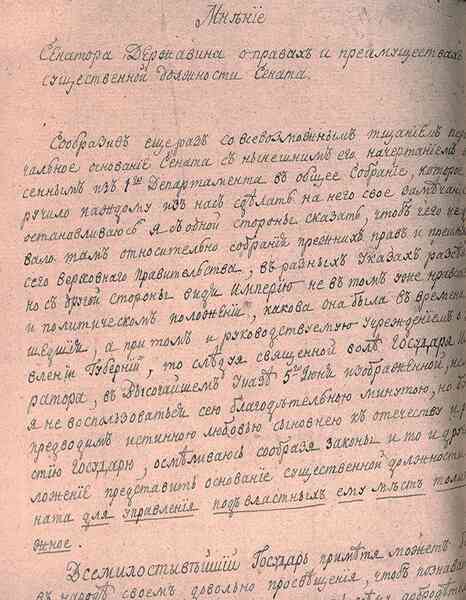 Мнѣніе
Сенатора Державина о правахъ и преимуществахъ
существенной должности Сената.
Сообразивъ еще разъ со всевозможнымъ тщаніемъ пер
чальное основаніе Сената съ нынешнимъ его начертаніемъ
сеннымъ изъ 1го Департамента въ общее Собраніе, которое
ручило каждому изъ насъ сдѣлать на него свое замѣчан
останавливаюсь я съ одной стороны сказать, чтобъ чего не
вало тамъ относительно собранія прежнихъ правъ и преим
сего верховнаго правительства, въ разныхъ Указахъ разсѣ
но съ другой стороны видя Имперію не въ томъ уже нравс
и политическомъ положеніи, какова она была въ времена
шедшія, а при томъ и руководствуемую учрежденіемъ о
вленіи Губерній, то слѣдуя священной волѣ Государя И
ратора, въ Высочайшемъ Указѣ 5го Іюня изображенной, не
я не воспользоваться сею благодѣтельною минутою, но
предводимъ истинною любовью сыновнею къ отечеству и
стію Государю, осмѣливаюсь сообразя законы и то и друг
ложеніе представить основаніе существенной должности
ната для управленія подъвластныхъ ему мѣстъ толи
жное.
Всемилостивѣйшій Государь примѣтя можетъ
въ народѣ своемъ довольно просвѣщенія, чтобъ познава